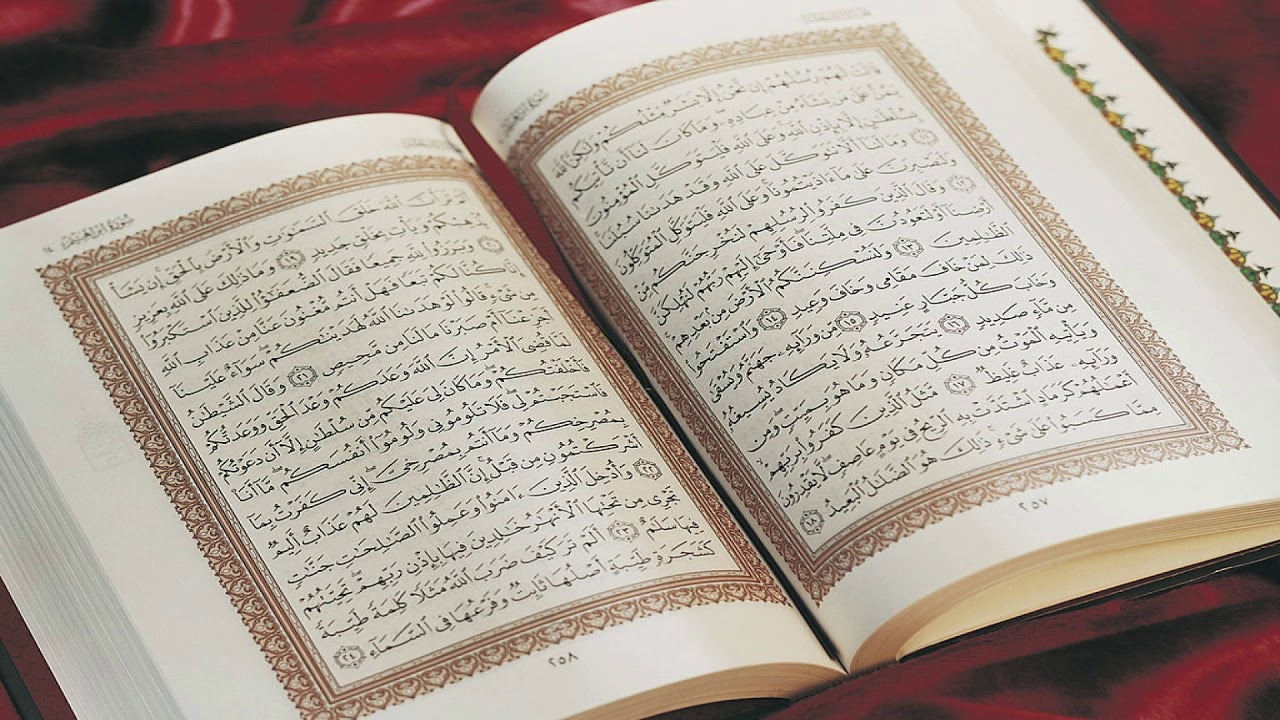 سُورَةُ إِبْرَاهِيمَ
قَالَتْ لَهُمْ رُسُلُهُمْ إِن نَّحْنُ إِلَّا بَشَرٌ مِّثْلُكُمْ وَلَٰكِنَّ ٱللَّهَ
يَمُنُّ عَلَىٰ مَن يَشَآءُ مِنْ عِبَادِهِۦ وَمَا كَانَ لَنَآ أَن نَّأْتِيَكُم
بِسُلْطَٰنٍ إِلَّا بِإِذْنِ ٱللَّهِ وَعَلَى ٱللَّهِ فَلْيَتَوَكَّلِ ٱلْمُؤْمِنُونَ
١١ وَمَا لَنَآ أَلَّا نَتَوَكَّلَ عَلَى ٱللَّهِ وَقَدْ هَدَىٰنَا سُبُلَنَا
وَلَنَصْبِرَنَّ عَلَىٰ مَآ ءَاذَيْتُمُونَا وَعَلَى ٱللَّهِ فَلْيَتَوَكَّلِ ٱلْمُتَوَكِّلُونَ
١٢ وَقَالَ ٱلَّذِينَ كَفَرُوا۟ لِرُسُلِهِمْ لَنُخْرِجَنَّكُم مِّنْ
أَرْضِنَآ أَوْ لَتَعُودُنَّ فِى مِلَّتِنَا فَأَوْحَىٰٓ إِلَيْهِمْ رَبُّهُمْ لَنُهْلِكَنَّ
ٱلظَّٰلِمِينَ ١٣ وَلَنُسْكِنَنَّكُمُ ٱلْأَرْضَ مِنۢ بَعْدِهِمْ
ذَٰلِكَ لِمَنْ خَافَ مَقَامِى وَخَافَ وَعِيدِ ١٤ وَٱسْتَفْتَحُوا۟
وَخَابَ كُلُّ جَبَّارٍ عَنِيدٍ ١٥ مِّن وَرَآئِهِۦ جَهَنَّمُ وَيُسْقَىٰ
مِن مَّآءٍ صَدِيدٍ ١٦ يَتَجَرَّعُهُۥ وَلَا يَكَادُ يُسِيغُهُۥ
وَيَأْتِيهِ ٱلْمَوْتُ مِن كُلِّ مَكَانٍ وَمَا هُوَ بِمَيِّتٍ وَمِن
وَرَآئِهِۦ عَذَابٌ غَلِيظٌ ١٧ مَّثَلُ ٱلَّذِينَ كَفَرُوا۟ بِرَبِّهِمْ
أَعْمَٰلُهُمْ كَرَمَادٍ ٱشْتَدَّتْ بِهِ ٱلرِّيحُ فِى يَوْمٍ عَاصِفٍ لَّا يَقْدِرُونَ
مِمَّا كَسَبُوا۟ عَلَىٰ شَىْءٍ ذَٰلِكَ هُوَ ٱلضَّلَٰلُ ٱلْبَعِيدُ ١٨
٢٥٧
سُورَةُ إِبْرَاهِيمَ
أَلَمْ تَرَ أَنَّ ٱللَّهَ خَلَقَ ٱلسَّمَٰوَٰتِ وَٱلْأَرْضَ بِٱلْحَقِّ إِن يَشَأْ
يُذْهِبْكُمْ وَيَأْتِ بِخَلْقٍ جَدِيدٍ ١٩ وَمَا ذَٰلِكَ عَلَى ٱللَّهِ بِعَزِيزٍ
٢٠ وَبَرَزُوا۟ لِلَّهِ جَمِيعًا فَقَالَ ٱلضُّعَفَٰٓؤُا۟ لِلَّذِينَ ٱسْتَكْبَرُوٓا۟
إِنَّا كُنَّا لَكُمْ تَبَعًا فَهَلْ أَنتُم مُّغْنُونَ عَنَّا مِنْ عَذَابِ ٱللَّهِ
مِن شَىْءٍ قَالُوا۟ لَوْ هَدَىٰنَا ٱللَّهُ لَهَدَيْنَٰكُمْ سَوَآءٌ عَلَيْنَآ
أَجَزِعْنَآ أَمْ صَبَرْنَا مَا لَنَا مِن مَّحِيصٍ ٢١ وَقَالَ ٱلشَّيْطَٰنُ
لَمَّا قُضِىَ ٱلْأَمْرُ إِنَّ ٱللَّهَ وَعَدَكُمْ وَعْدَ ٱلْحَقِّ وَوَعَدتُّكُمْ
فَأَخْلَفْتُكُمْ وَمَا كَانَ لِىَ عَلَيْكُم مِّن سُلْطَٰنٍ إِلَّآ أَن دَعَوْتُكُمْ
فَٱسْتَجَبْتُمْ لِى فَلَا تَلُومُونِى وَلُومُوٓا۟ أَنفُسَكُم مَّآ أَنَا۠
بِمُصْرِخِكُمْ وَمَآ أَنتُم بِمُصْرِخِىَّ إِنِّى كَفَرْتُ بِمَآ
أَشْرَكْتُمُونِ مِن قَبْلُ إِنَّ ٱلظَّٰلِمِينَ لَهُمْ عَذَابٌ أَلِيمٌ
٢٢ وَأُدْخِلَ ٱلَّذِينَ ءَامَنُوا۟ وَعَمِلُوا۟ ٱلصَّٰلِحَٰتِ جَنَّٰتٍ
تَجْرِى مِن تَحْتِهَا ٱلْأَنْهَٰرُ خَٰلِدِينَ فِيهَا بِإِذْنِ رَبِّهِمْ تَحِيَّتُهُمْ
فِيهَا سَلَٰمٌ ٢٣ أَلَمْ تَرَ كَيْفَ ضَرَبَ ٱللَّهُ مَثَلًا كَلِمَةً طَيِّبَةً
كَشَجَرَةٍ طَيِّبَةٍ أَصْلُهَا ثَابِتٌ وَفَرْعُهَا فِى ٱلسَّمَآءِ ٢٤
٢٥٨